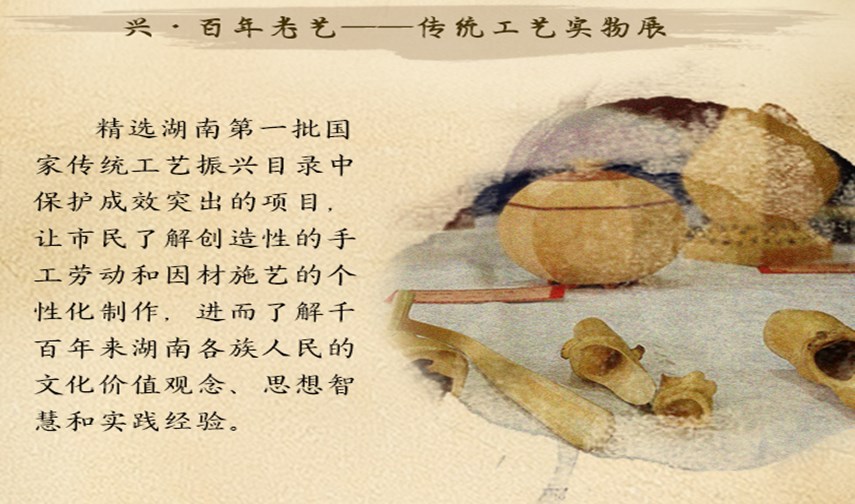 兴·百年老艺——传统工艺实物展
精选湖南第一批国
家传统工艺振兴目录中
保护成效突出的项目，
让市民了解创造性的手
工劳动和因材施艺的个
性化制作，进而了解千
百年来湖南各族人民的
文化价值观念、思想智
慧和实践经验。